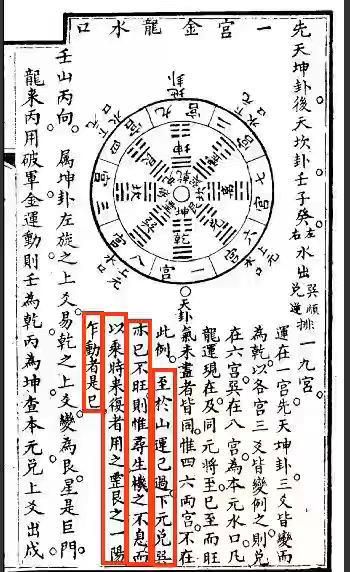 一宮金龍水口
先天坤卦後天坎卦壬子癸左右水出巽兌順逆排一九宮。
地卦
九宮
二宮
下元水口
七宮
六宮
上元水口
一宮
八宮
上元水口
三宮
四宮
下元水口
坤
天卦
運在一宮先天坤卦三爻皆變而
為乾以各宮三爻皆變例之則兌
在六宮巽在八宮為本元水口凡
龍運現在及同元將至已至而旺
氣未盡者皆同惟四六兩宮不在
此例。至於山運已過下元兌巽
亦已不旺則惟尋生機之不息而
以乘將来復者用之靈艮之一陽
乍動者是已
壬山丙向。屬坤卦左旋之上爻易乾之上爻變為艮星是巨門
龍来丙用破軍金運動則壬為乾丙為坤查本元兌上爻出戌